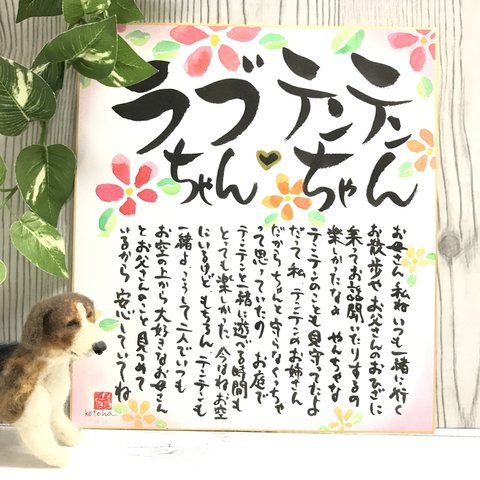 テンテン
ちゃん
ラブ
ちゃん
お母さん 私ね いつも一緒に行く
お散歩や お父さんのおひざに
乗ってお話聞いたりするの
楽しかったなぁ やんちゃな
テンテンのことも見守ってたよ
だって私 テンテンのお姉さん
だから ちゃんと守らなくっちゃ
って思っていたの お庭で
テンテンと一緒に遊べる時間も
とっても楽しかった 今はね お空
にいるけど もちろん テンテンも
一緒よ こうして二人でいつも
お空の上から大好きなお母さん
とお父さんのこと見つめて
いるから 安心していてね
kotoha